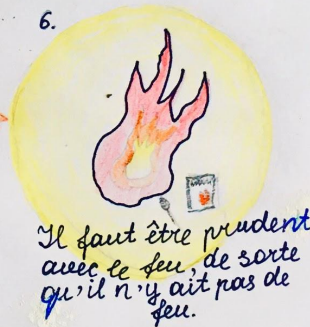 6.
Il faut être prudent
avec le feu, de sorte
qu'il n'y ait pas de
feu.